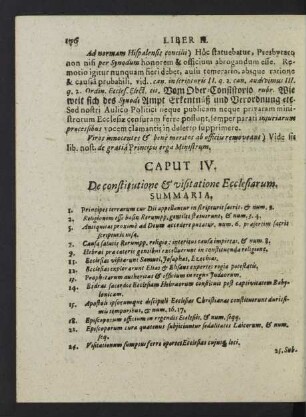 196 LIBER II.
Ad normam Hispalensis concilii) Hoc statuebatur, Presbyterum
non nisi per Synodum honorem & officium abrogandum esse. Re-
motio igitur nunquam fieri debet, ausu temerario, absque ratione
& causa probabili. vid. can. inter 11. q. 2. can. audivimus III.
q. 2. Ordin. Eccles. Elect. tit. Vom Ober-Consistorio rubr. Wie
weit sich des Synodi Ampt erstrecken und Verordnung etc.
Sed nostri Aulico Politici neque publicam neque secretam mi-
nistrorum Ecclesiæ censuram ferre possunt, semper paratam injuriarum
processibus vocem clamantis in deserto supprimere.
Viros innocentes & bene meritos ab officiis removeant) Vide
lib. nost. de gratia Principis erga Ministrum.
CAPUT IV.
De constitutione & visitatione Ecclesiarum.
SUMMARIA,
1. Principes terrarum cur Dii appellentur in scripturis sacris. & num. 8.
2. Religionem esse basin Rerumpp. gentiles statuerunt, & num. 3. 4.
5. Antiquitas proxime ad Deum accedere putatur, num. 6. præsertim sacris
scripturis
7. Causa salutis Rerumpp. religio; interitus causa impietas. & num. 8.
9. Hebræi præ cæteris gentibus excelluerunt in constituenda religione.
11. Ecclesias visitarunt Samuel, Josaphat, Ezechias,
12. Ecclesias expiarunt Ethas & Elisæus expertes regiæ potestatis,
13. Prophetarum authoritas & officium in regno Judæorum,
14. Esdras sacerdos Ecclesiam Hebræorum constituit post captivitatem Baby-
lonicam.
15. Apostoli ipsorumque discipuli Ecclesias Christianas constituerunt durissi-
mis temporibus, & num. 16. 17.
18. Episcoporum officium in regendis Ecclesiis, & num. seqq.
21. Episcoporum cura quatenus subjiciuntur sodalitates Laicorum, & num.
seq.
24. Visitationum sumptus ferre oportet Ecclesias cujusq; loci,
25. Sub-